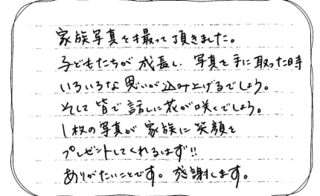 家族写真を撮って頂きました。
子どもたちが成長し、写真を手に取った時
いろいろな思いが込み上げるでしょう。
そして皆で話しに花が咲くでしょう。
1枚の写真が家族に笑顔を
プレゼントしてくれるはず!!
ありがたいことです。感謝します。